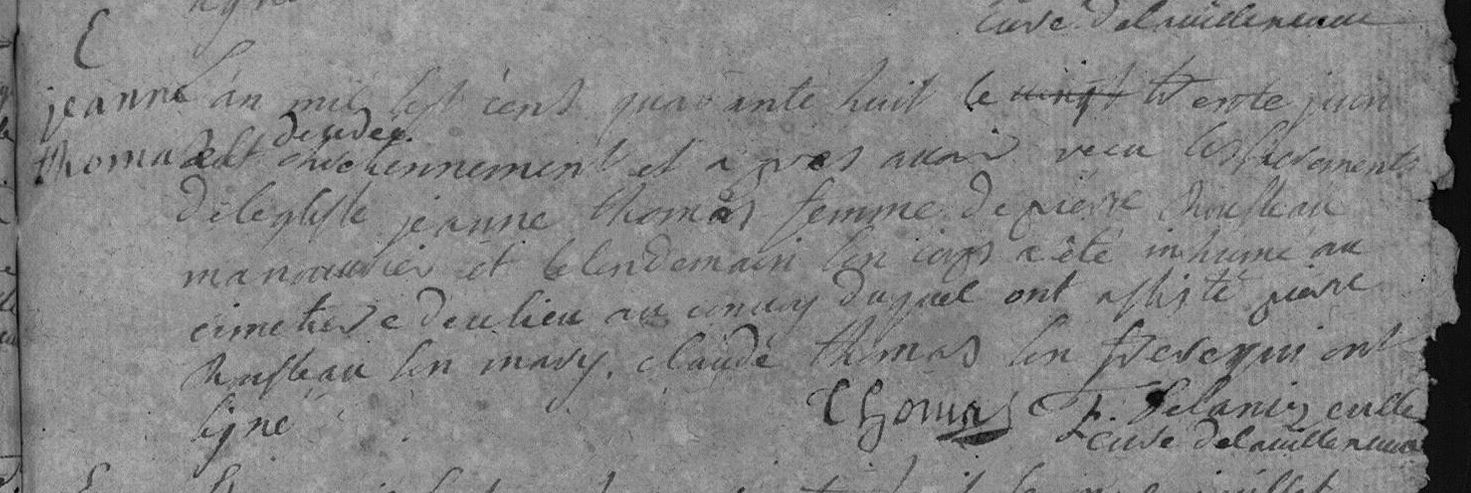 signé
cure delavilleneuve
jeanne
thomas
L'an mil sept cens quarante huit le vingt trente juin
est decedée
chretiennement et apres avoir recu les sacrements
de leglisse jeanne thomas femme de pierre Rousseau
manouvrier et le lendemain son corps a été inhumé au
cimetiere de ce lieu au convoy duquel ont assisté pierre
Rousseau son mary, claude thomas son frere qui ont
signé
Thomas F. cure delavilleneuve